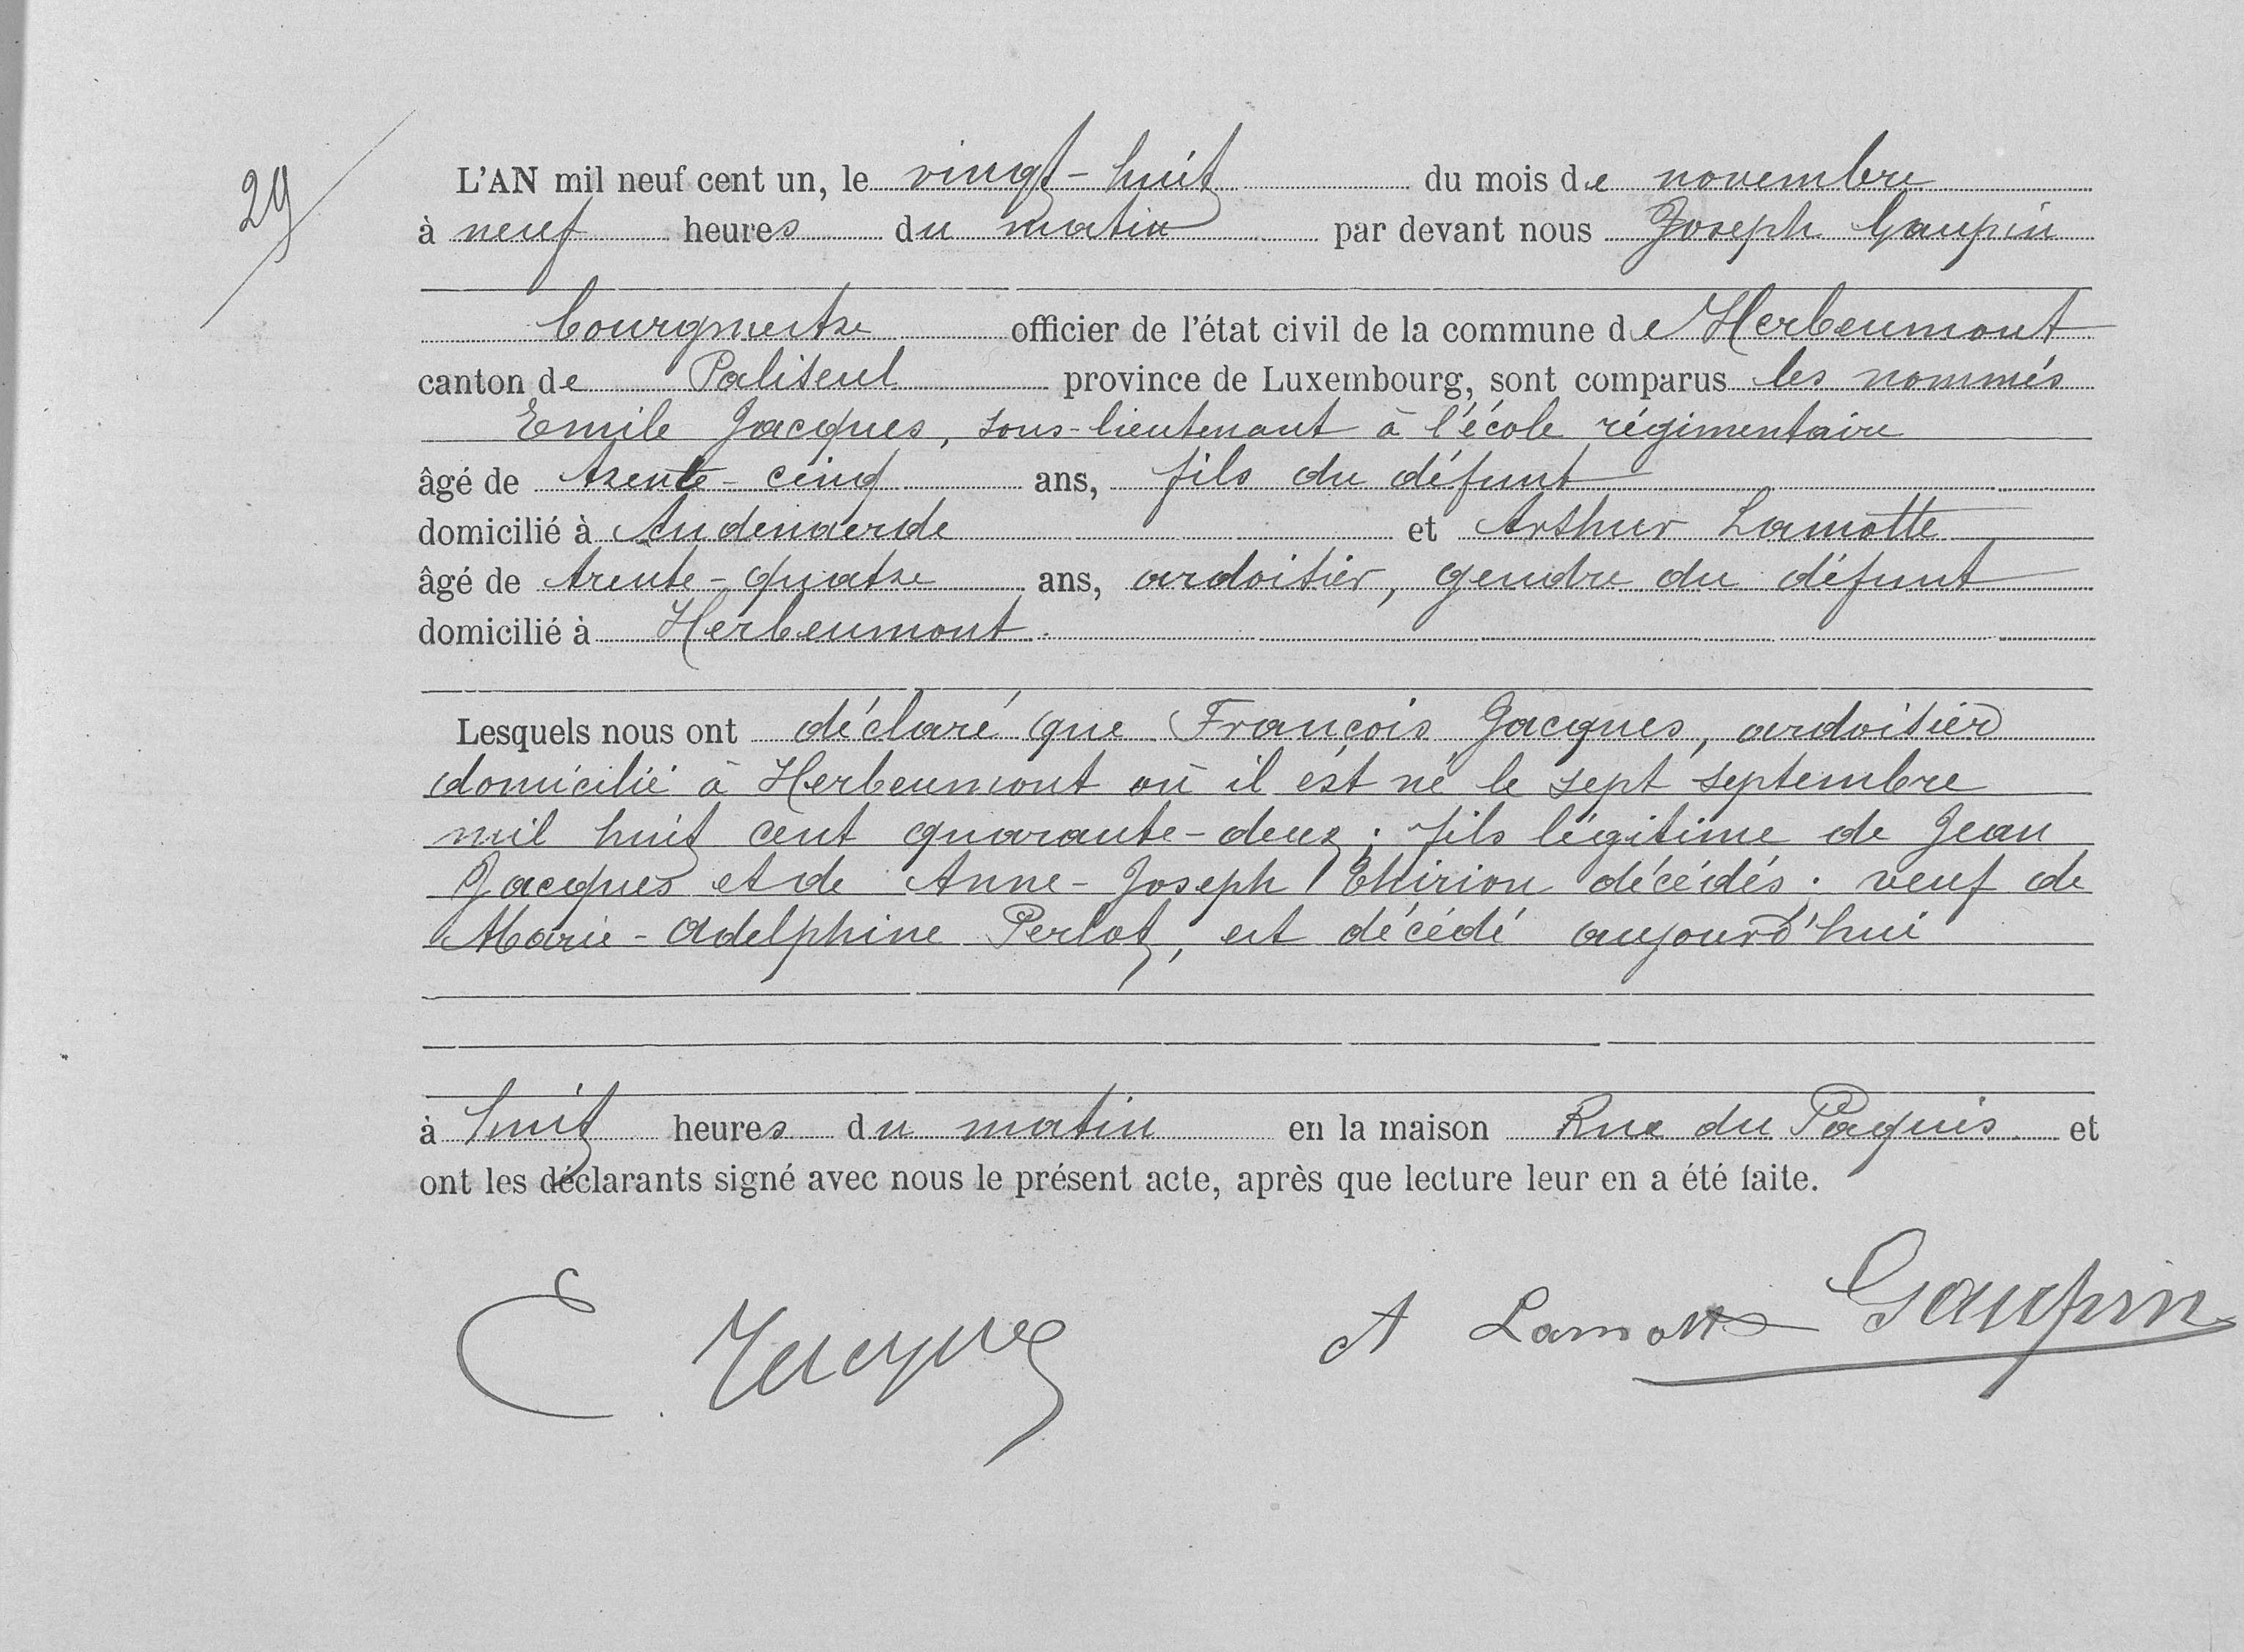 29
L'AN mil neuf cent un, le vingt-huit du mois de novembre
à neuf heures du matin par devant nous Joseph Gaupin
bourgmestre officier de l'état civil de la commune de Herbeumont
canton de Paliseul province de Luxembourg, sont comparus les nommés
Emile Jacques, sous-lieutenant à l'école régimentaire
âgé de trente-cinq ans, fils du défunt
domicilié à Audenaerde et Arthur Lamotte
âgé de trente-quatre ans, ardoisier, gendre du défunt
domicilié à Herbeumont.
Lesquels nous ont déclaré que François Jacques, ardoisier
domicilié à Herbeumont où il est né le sept septembre
mil huit cent quarante-deux; fils légitime de Jean
Jacques et de Anne-Joseph Thirion décédés; veuf de
Marie-Adelphine Perlot, est décédé aujourd'hui
à huit heures du matin en la maison Rue du Paquis et
ont les déclarants signé avec nous le présent acte, après que lecture leur en a été faite.
E. Jacques A Lamotte Gaupin